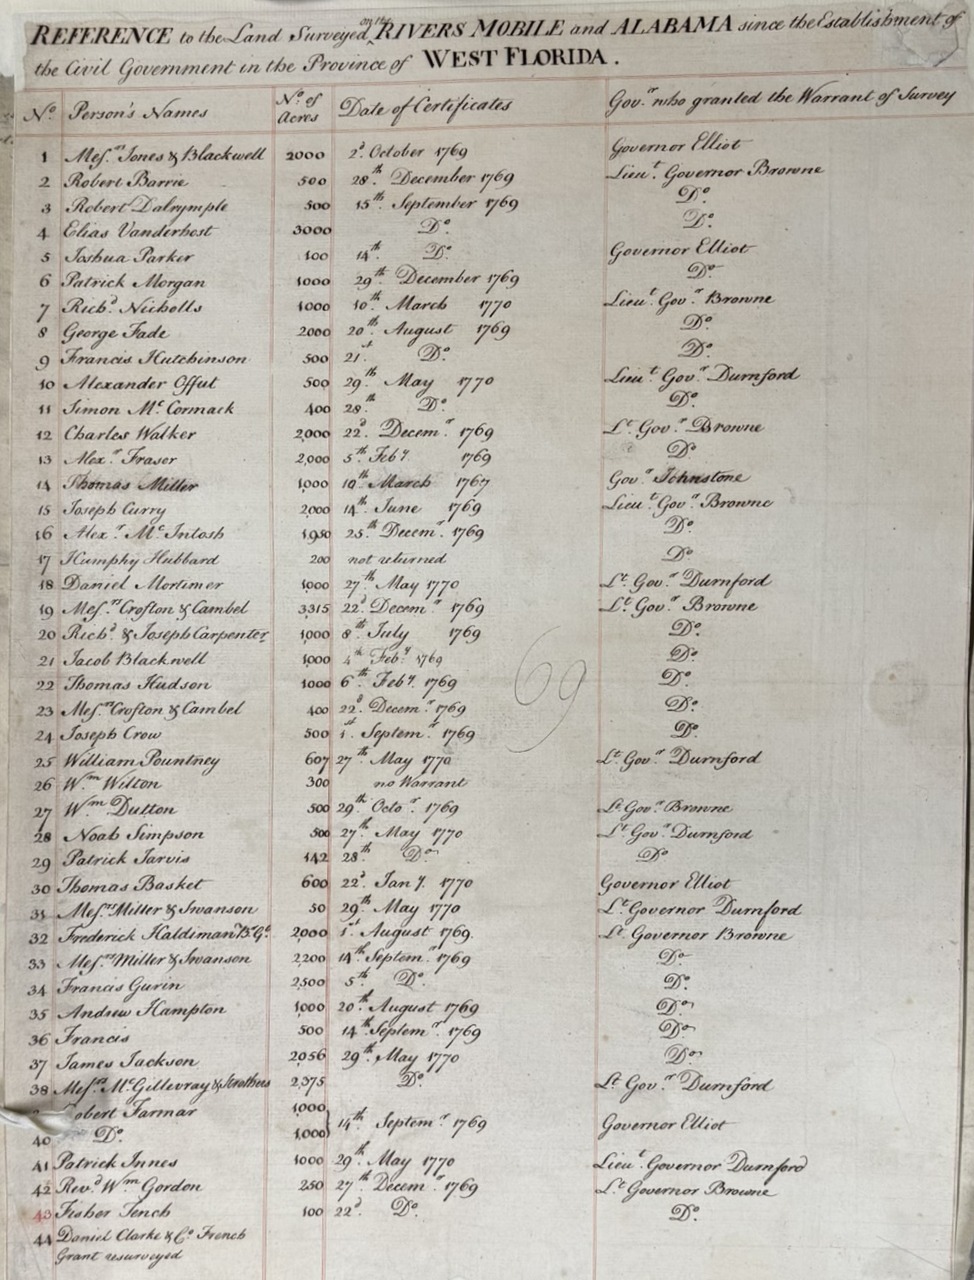 REFERENCE to the Land Surveyed on the RIVERS MOBILE and ALABAMA since the Establishment of
the Civil Government in the Province of WEST FLORIDA.
No. Person's Names No. of Acres Date of Certificates Gov.r who granted the Warrant of Survey
1 Mes.rs Jones & Blackwell 2000 2d October 1769 Governor Elliot
2 Robert Barrie 500 28th December 1769 Lieu.t Governor Browne
3 Robert Dalrymple 500 15th September 1769 Do.
4 Elias Vanderhost 3000 Do. Do.
5 Joshua Parker 100 14th Do. Governor Elliot
6 Patrick Morgan 1000 29th December 1769 Do.
7 Rich.d Nicholls 1000 10th March 1770 Lieu.t Gov.r Browne
8 George Fade 2000 20th August 1769 Do.
9 Francis Hutchinson 500 21st Do. Do.
10 Alexander Offut 500 29th May 1770 Lieu.t Gov.r Durnford
11 Simon Mc Cormack 400 28th Do. Do.
12 Charles Walker 2,000 22d Decem.r 1769 L.t Gov.r Browne
13 Alex.r Fraser 2,000 5th Feb.y 1769 Do.
14 Thomas Miller 1,000 19th March 1767 Gov.r Johnstone
15 Joseph Curry 2,000 14th June 1769 Lieu.t Gov.r Browne
16 Alex.r Mc Intosh 1,950 25th Decem.r 1769 Do.
17 Humphy Hubbard 200 not returned Do.
18 Daniel Mortimer 1000 27th May 1770 L.t Gov.r Durnford
19 Mes.rs Crofton & Cambel 3315 22d Decem.r 1769 L.t Gov.r Browne
20 Rich.d & Joseph Carpenter 1,000 8th July 1769 Do.
21 Jacob Blackwell 1,000 4th Feb.y 1769 Do.
22 Thomas Hudson 1000 6th Feb.y 1769 Do.
23 Mes.rs Crofton & Cambel 400 22d Decem.r 1769 Do.
24 Joseph Crow 500 1st Septem.r 1769 Do.
25 William Pountney 607 27th May 1770 L.t Gov.r Durnford
26 W.m Wilton 300 no Warrant
27 W.m Dutton 500 29th Octo.r 1769 L.t Gov.r Browne
28 Noah Simpson 500 27th May 1770 L.t Gov.r Durnford
29 Patrick Jarvis 142 28th Do. Do.
30 Thomas Basket 600 22d Jan.y 1770 Governor Elliot
31 Mes.rs Miller & Swanson 50 29th May 1770 L.t Governor Durnford
32 Frederick Haldiman B.G. 2,000 1st August 1769. L.t Governor Browne
33 Mes.rs Miller & Swanson 2,200 14th Septem.r 1769 Do.
34 Francis Gurin 2,500 5th Do. Do.
35 Andrew Hampton 1000 20th August 1769 Do.
36 Francis 500 14th Septem.r 1769 Do.
37 James Jackson 2,056 29th May 1770 Do.
38 Mes.rs McGillevray & Strothers 2,375 Do. L.t Gov.r Durnford
obert Farmar 1,000
40 Do. 1,000 14th Septem.r 1769 Governor Elliot
41 Patrick Innes 1000 29th May 1770 Lieu.t Governor Durnford
42 Rev.d W.m Gordon 250 27th Decem.r 1769 L.t Governor Browne
43 Fisher Tench 100 22d Do. Do.
44 Daniel Clarke & Co. French
Grant resurveyed
69